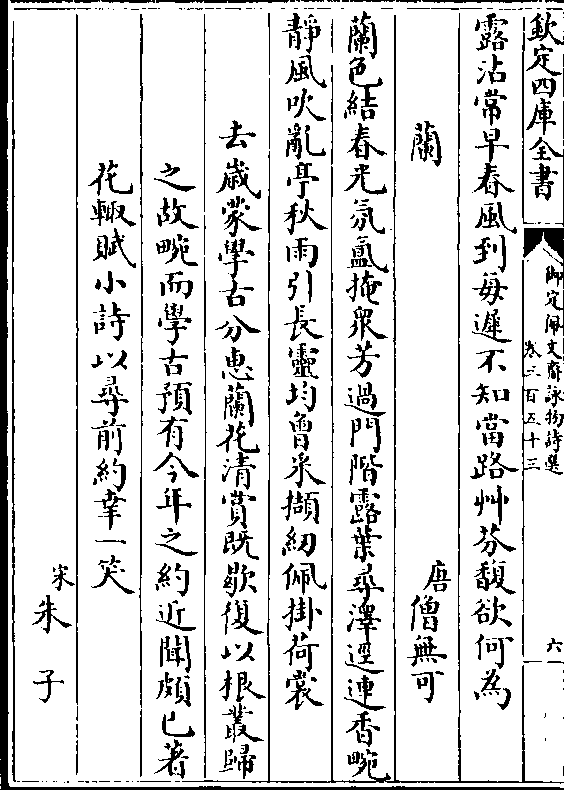 欽定四庫全書
御定佩文齋詠物詩選
卷三百五十三
六
露沾常早春風到每遲不知當路艸芬馥欲何為
蘭
唐僧無可
蘭色結春光氛氳掩衆芳過門階露葉尋澤逕連香畹
靜風吹亂亭秋雨引長靈均曾采擷紉佩掛荷裳
去歲蒙學古分惠蘭花清賞既歇復以根叢歸
之故畹而學古預有今年之約近聞頗已著
花輙賦小詩以尋前約幸一笑
宋朱子